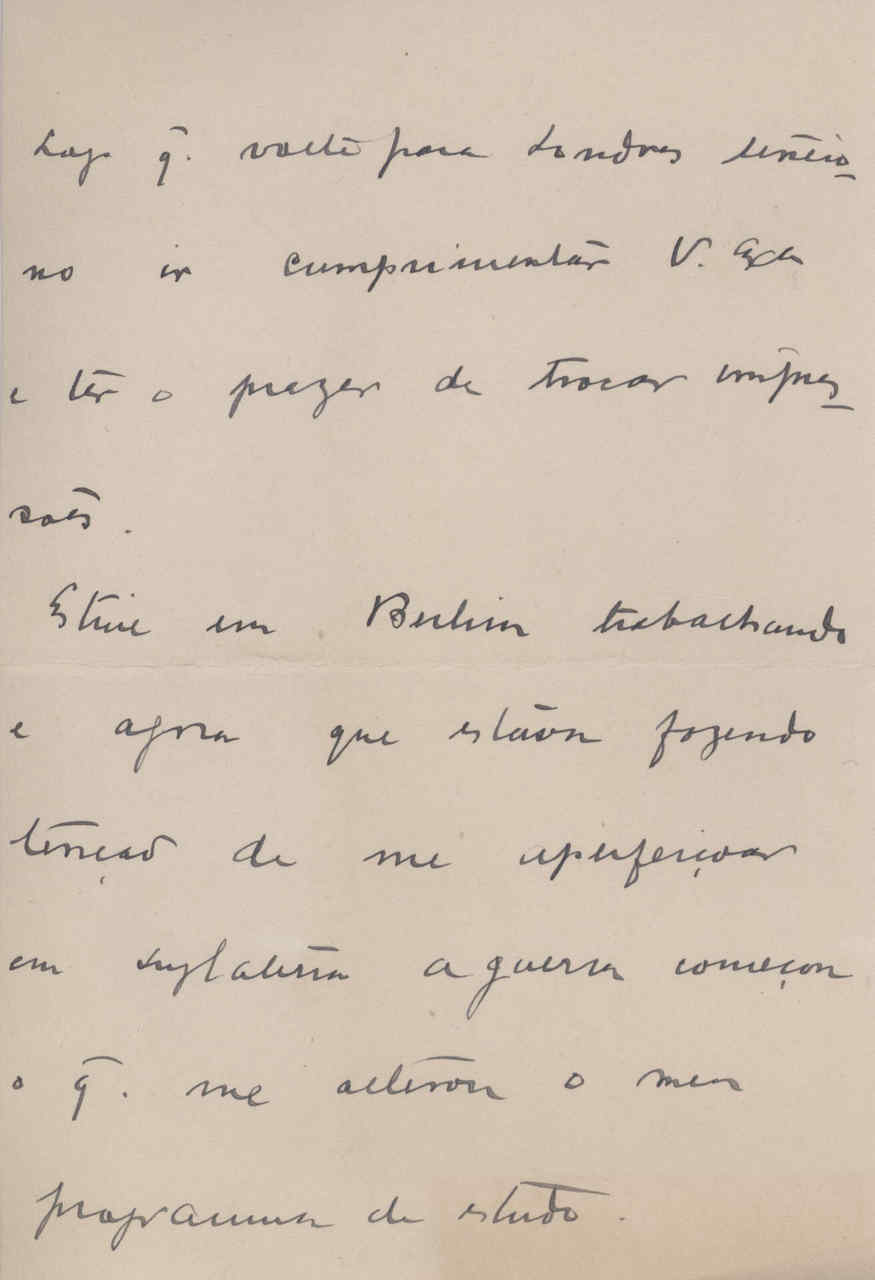 Logo q̃. volte para Londres tencio-
no ir cumprimentar V. Exa
e ter o prazer de trocar impres-
soẽs.
Estive em Berlim trabalhando
e agora que estava fazendo
tenção de me aperfeiçoar
em Inglaterra a guerra começou
o q̃. me alterou o meu
programma de estudo.